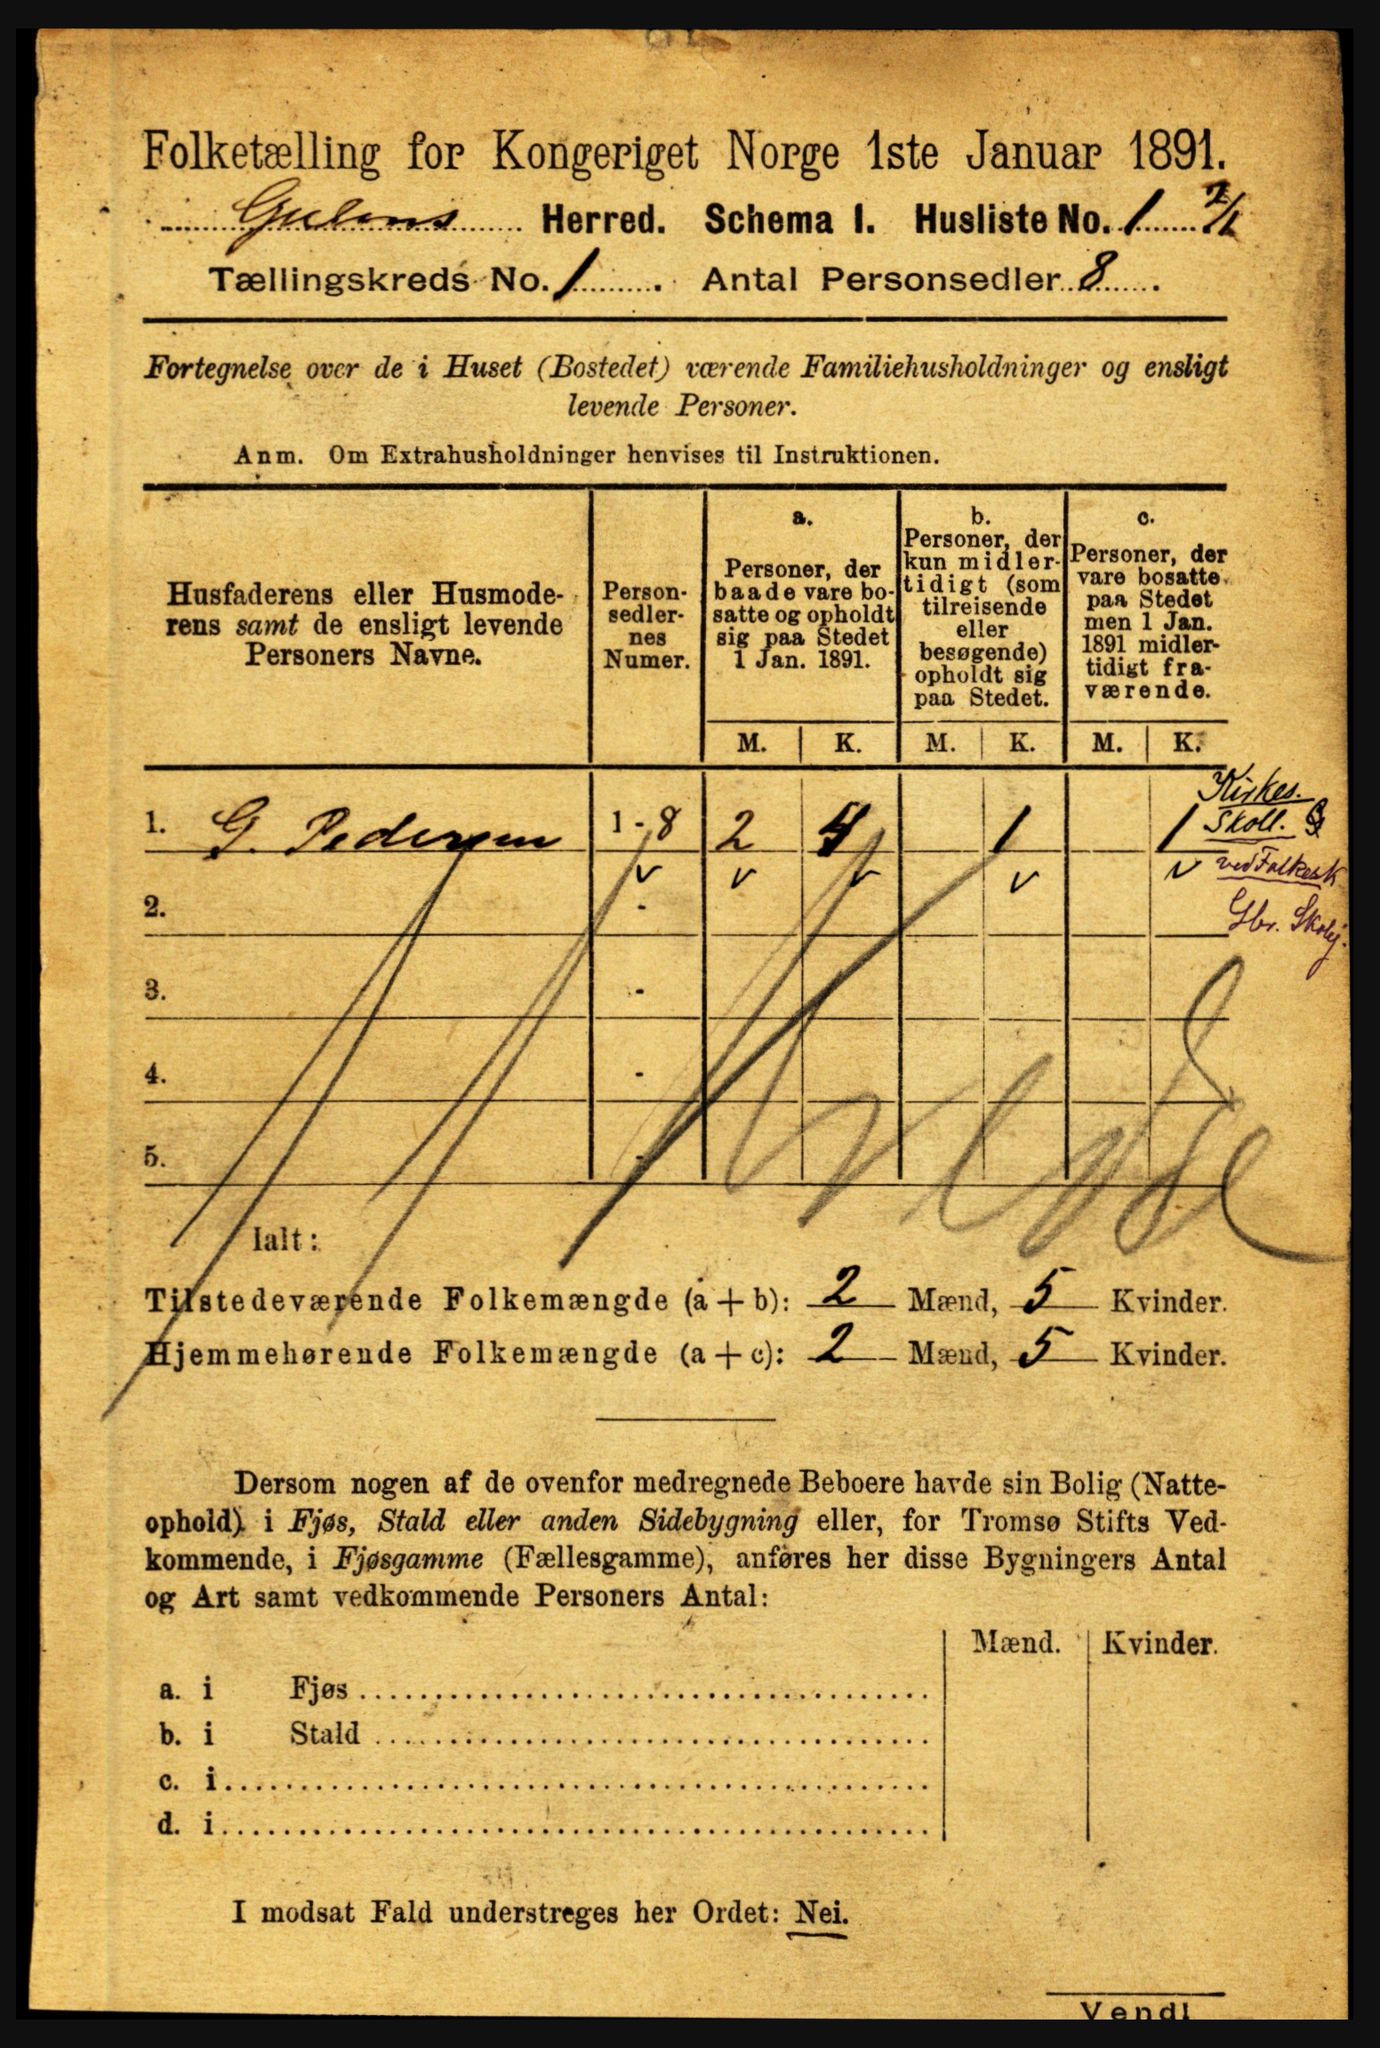 Folketælling for Kongeriget Norge 1ste Januar 1891.
Gulens Herred. Schema I. Husliste No. 1
Tællingskreds No. 1. Antal Personsedler 8.
Fortegnelse over de i Huset (Bostedet) værende Familiehusholdninger og ensligt
levende Personer.
Anm. Om Extrahusholdninger henvises til Instruktionen.
Husfaderens eller Husmode-
rens samt de ensligt levende
Personers Navne.
Person-
sedler-
nes
Numer.
a.
Personer, der
baade vare bo-
satte og opholdt
sig paa Stedet
1 Jan. 1891.
b.
Personer, der
kun midler-
tidigt (som
tilreisende
eller
besøgende)
opholdt sig
paa Stedet.
c.
Personer, der
vare bosatte
paa Stedet
men 1 Jan.
1891 midler-
tidigt fra-
værende.
M. K. M. K. M. K.
1. G. Pedersen 1 - 8 2 4 1 1
Kirkes.
Skoll.
ved Folkesk
Gbr. Skolej.
2. -
3. -
4. -
5. -
Ialt:
Tilstedeværende Folkemængde (a + b): 2 Mænd, 5 Kvinder.
Hjemmehørende Folkemængde (a + c): 2 Mænd, 5 Kvinder.
Dersom nogen af de ovenfor medregnede Beboere havde sin Bolig (Natte-
ophold) i Fjøs, Stald eller anden Sidebygning eller, for Tromsø Stifts Ved-
kommende, i Fjøsgamme (Fællesgamme), anføres her disse Bygningers Antal
og Art samt vedkommende Personers Antal:
Mænd. Kvinder.
a. i Fjøs
b. i Stald
c. i
d. i
I modsat Fald understreges her Ordet: Nei.
Vend!